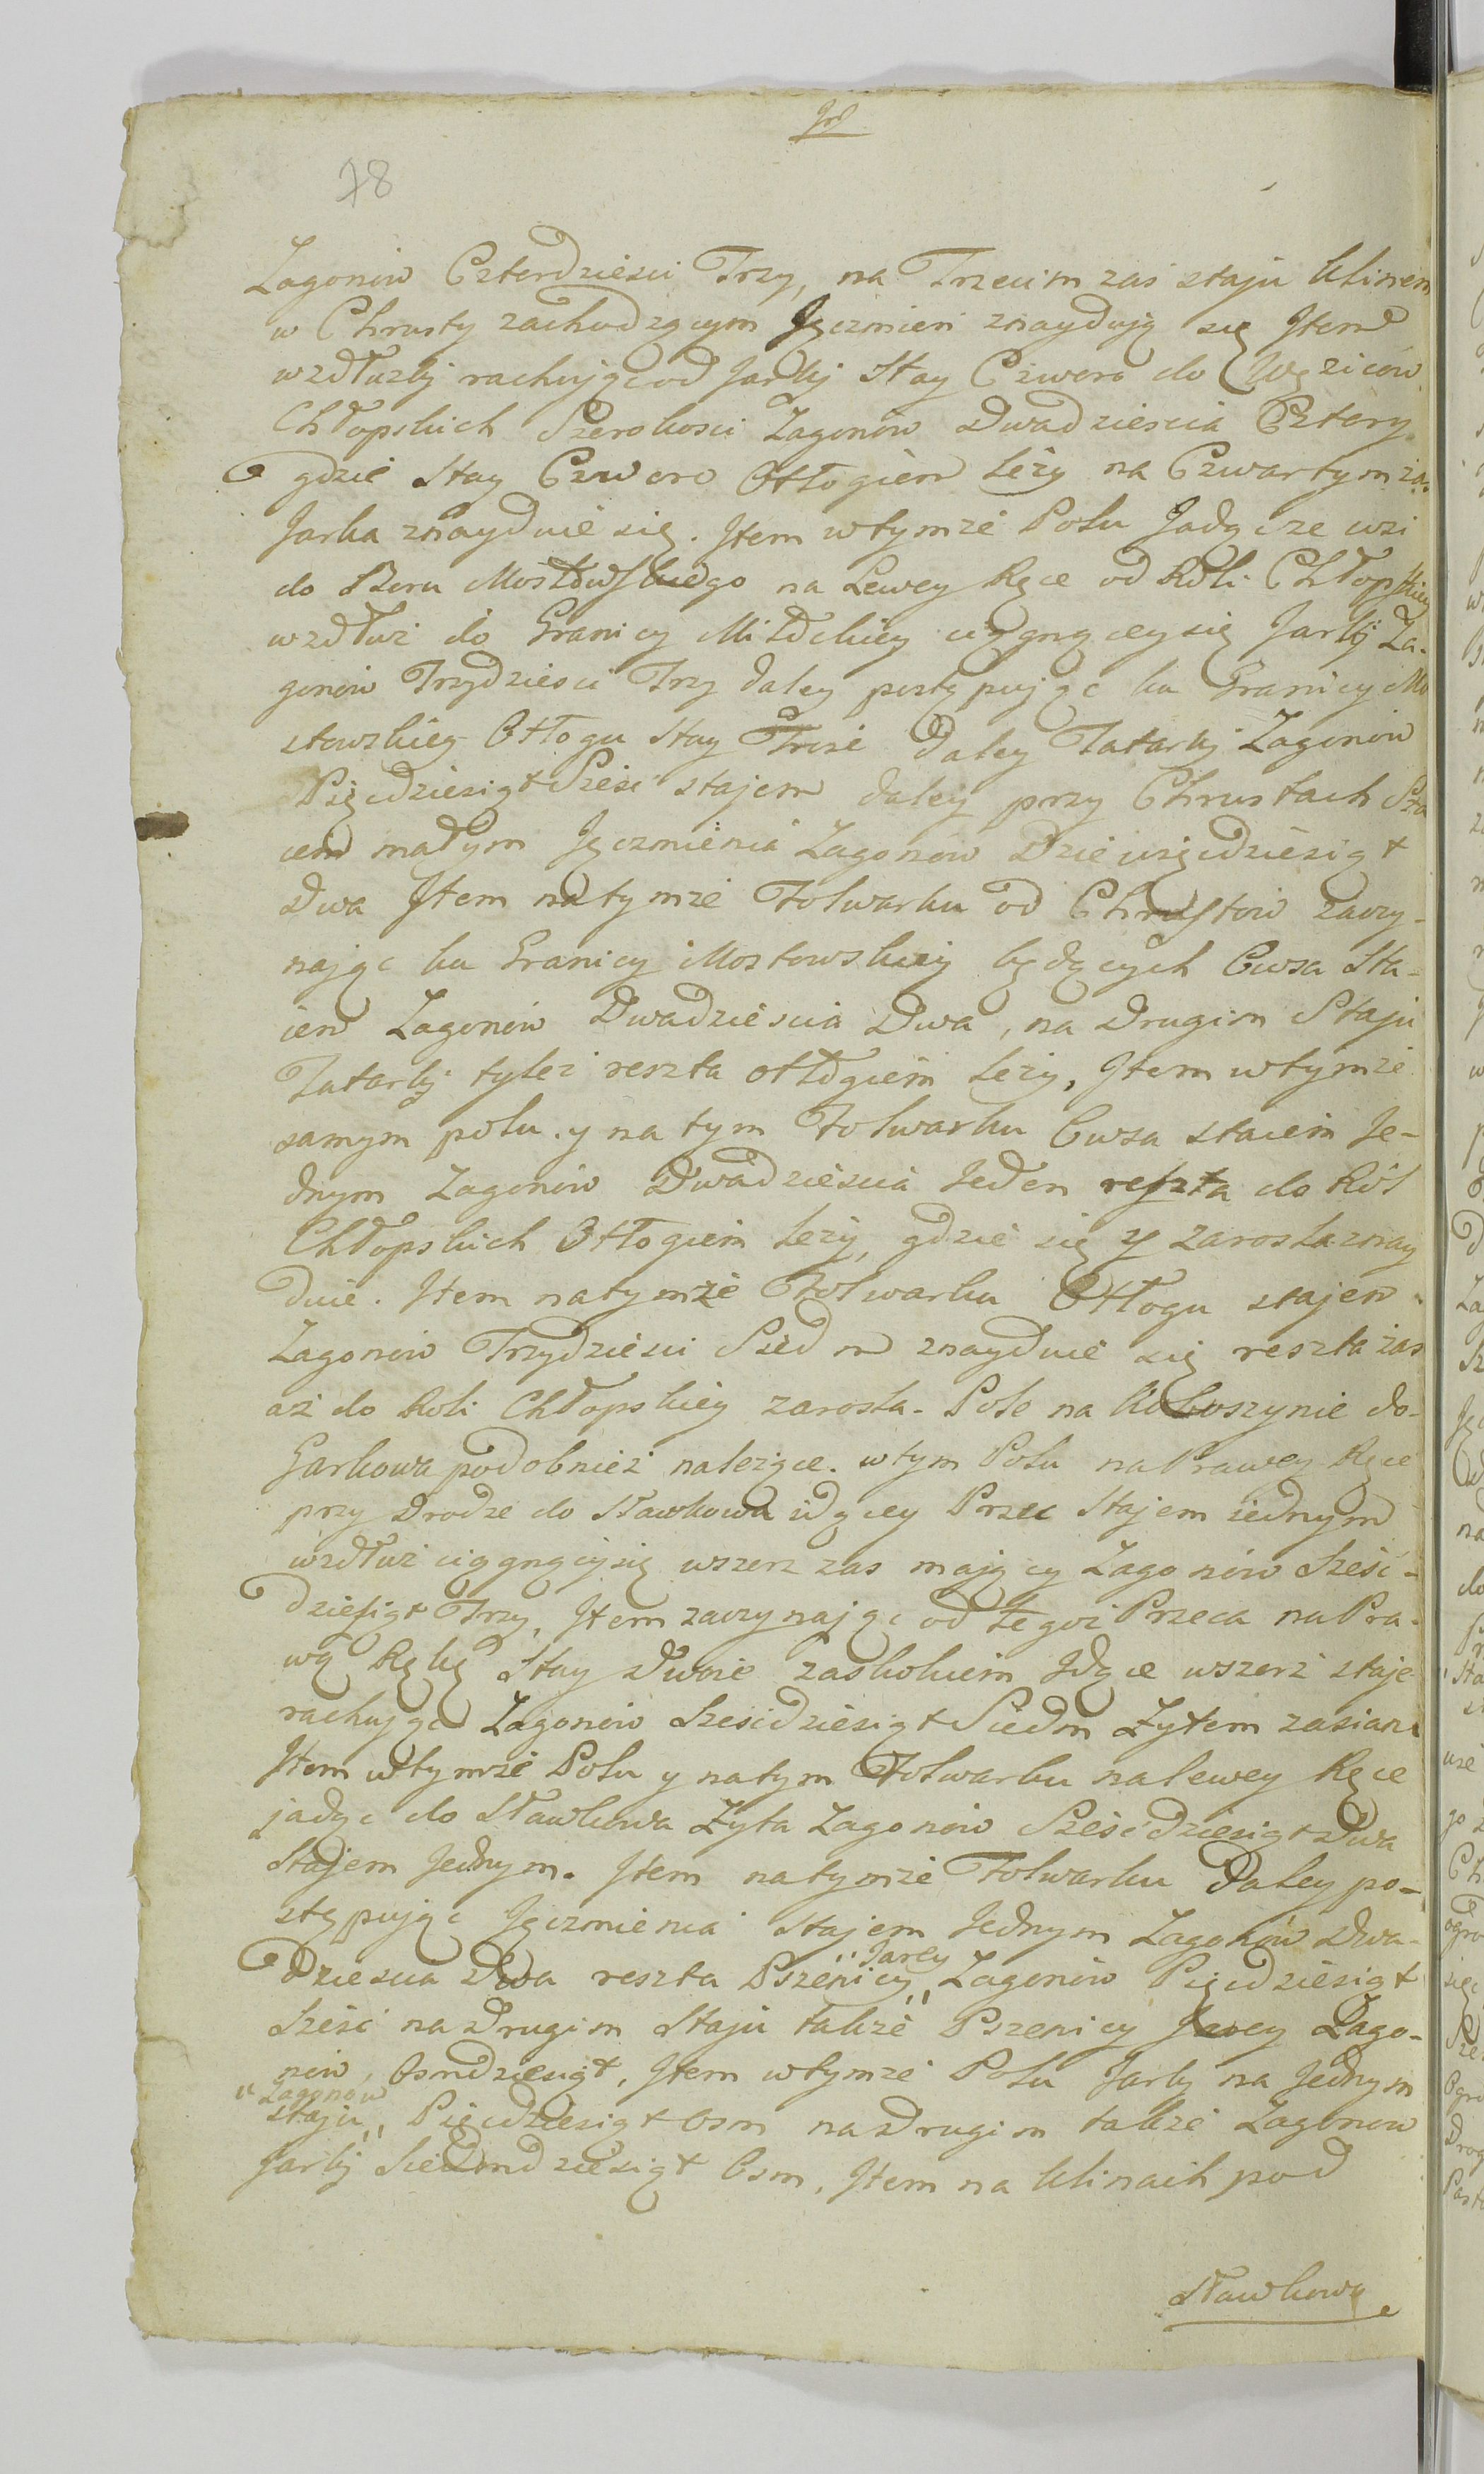 78
Zagonow Czterdziesci Trzy, na Trzecim zaś staju klinem
w Chrusty zachodzącym Jęczmień znaydują się Jtem
wzdłuzky rachując od Jarky Stay Czworo do
Chłopskich Szerokosci Zagonow Dwadziescia Cztery
gdzie Stay Czworo Odłogiem leży na Czwartym zaś
Jarka znayduie się. Jtem wtymże Polu Jadąc ze wsi
do Boru Mostowskiego na Lewey Ręce od Roli Chłopskiey
wzdłuż do Granicy ciągnącey się Jarky Za-
gonow Trzydziesci Trzy daley postępując ku Granicy Mo
stowskiey Odłogu Stay Troie daley Tatarky Zagonow
Pięcdziesiąt Sześć stajem daley przy Chrustach Sta
iem małym Jęczmienia Zagonow Dziewięcdziesiąt
Dwa Jtem natymże Folwarku od Chrustow zaczy-
nając ku Granicy Mostowskiey będących Owsa Sta-
iem Zagonow Dwadziescia Dwa, na Drugim Staju
Tatarky tyleż reszta odłogiem leży, Jtem wtymże
samym polu y na tym Folwarku Owsa staiem Je-
dnym Zagonow Dwadziescia Jeden reszta do Ról
Chłopskich Odłogiem leży, gdzie się y zarosla znay
duie. Jtem natymże Folwarku Odłogu stajem
Zagonow Trzydziesci Siedm znayduie się reszta zaś
aż do Roli Chłopskiey zarosła. Pole na Kokoszynie do-
Garkowa podobnież należące. wtym Polu na Prawey Ręce
przy Drodze do Sławkowa idącey Przec Stajem iednym
wzdłuż ciągnącysię wszerz zas mający Zagonow Sześć-
dziesiąt Trzy, Jtem zaczynając od tegoż Przeca na Pra-
wą Rękę Stay Dwoie zaskokiem Jdące wszerz staje
rachując Zagonow Szescdziesiąt Siedm Żytem zasiane
Jtem wtymże Polu y natym Folwarku nalewey Ręce
jadąc do Sławkowa Żyta Zagonow Sześćdziesiąt Dwa
Stajem Jednym. Jtem natymże Folwarku Daley po-
stępując Jęczmienia Stajem Jednym Zagonow Dwa-
dziescia Dwa reszta Pszenicy „Jarey„ Zagonow Pięcdziesiąt
Sześć na Drugim Staju także Pszenicy Jarey Zago-
now, Osmdziesiąt, Jtem wtymże Polu Jarky na Jednym
staju „Zagonow„ Pięcdziesiąt Osm na Drugim także Zagonow
Jarky Siedmdziesiąt Osm, Jtem na Klinach pod
Sławkowa